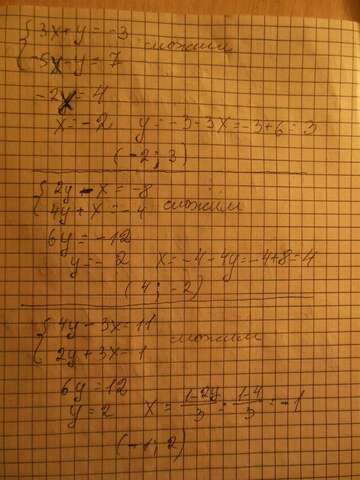 { 3x+y=-3 сложим
-5x-y=7
-2x=4
x=-2 y=-3-3x=-3+6=3
(-2; 3)
{ 2y-x=-8
4y+x=-4 сложим
6y=-12
y=-2 x=-4-4y=-4+8=4
(4; -2)
{ 4y-3x=11 сложим
2y+3x=1
6y=12
y=2 x=(1-2y)/3=(1-4)/3=-1
(-1; 2)